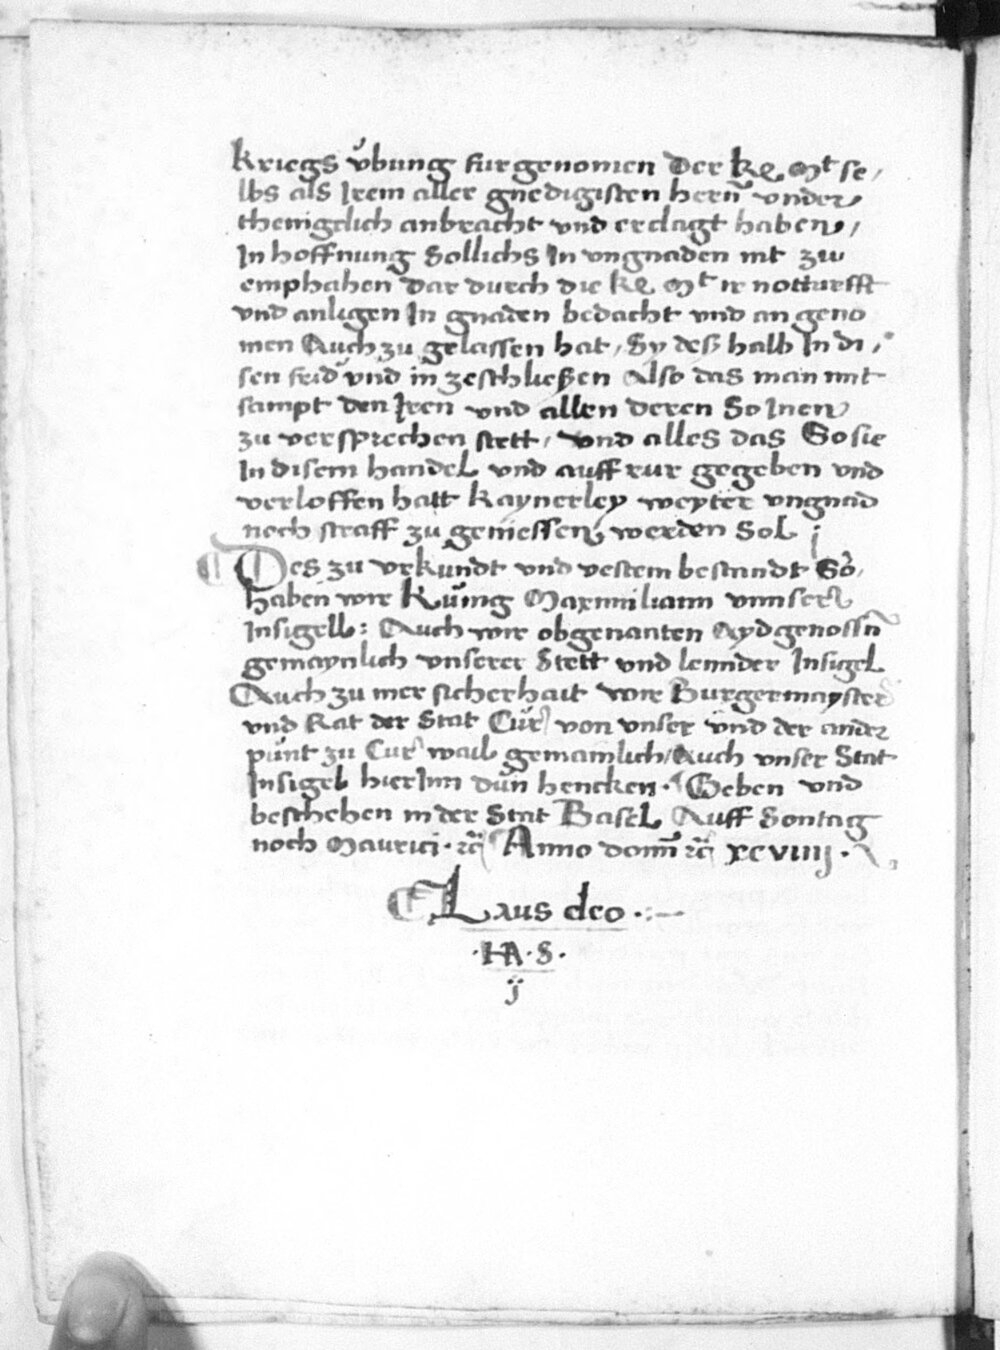 kriegs v̊bung furgenomen Der ke Mt se,
lbs als Jrem aller gnedigisten hern̄ vnder,
thenigclich anbracht vnd erclagt haben,
In hoffnung Sollichs In vngnaden nit zu
emphahen Dar durch die ke Mt ir notturfft
vnd anligen In gnaden bedacht vnd an geno
men Auch zu gelassen hat, Sy deß halb In di,
sen frid vnd in zeschließen Also das man mit
sampt den Jren vnd allen deren So Inen
zu versprechen stett, vnd alles das So sie
In disem handel vnd auff rur gegeben vnd
verloffen hatt kaynerley weyter vngnad
noch straff zu geniessen werden Sol
Des zu vrkundt vnd vestem bestandt So,
haben wir Kunig Maximiliann vnnser
Insigell: Auch wir obgenanten Aydgenossn̄
gemaynlich vnserer Stett vnd lennder Insigel
Auch zu mer sicherhait wir Burgermayster
vnd Rat der Stat Cur von vnser vnd der ander
punt zu Cur wail gemainlich, Auch vnser Stat
Insigel hier Inn dun hencken. Geben vnd
beschehen in der Stat Basel Auff Sontag
noch Maurici. rc̄ Anno domī rc̄ xcviiij.
Laus deo .:—
.HA.S.
ij